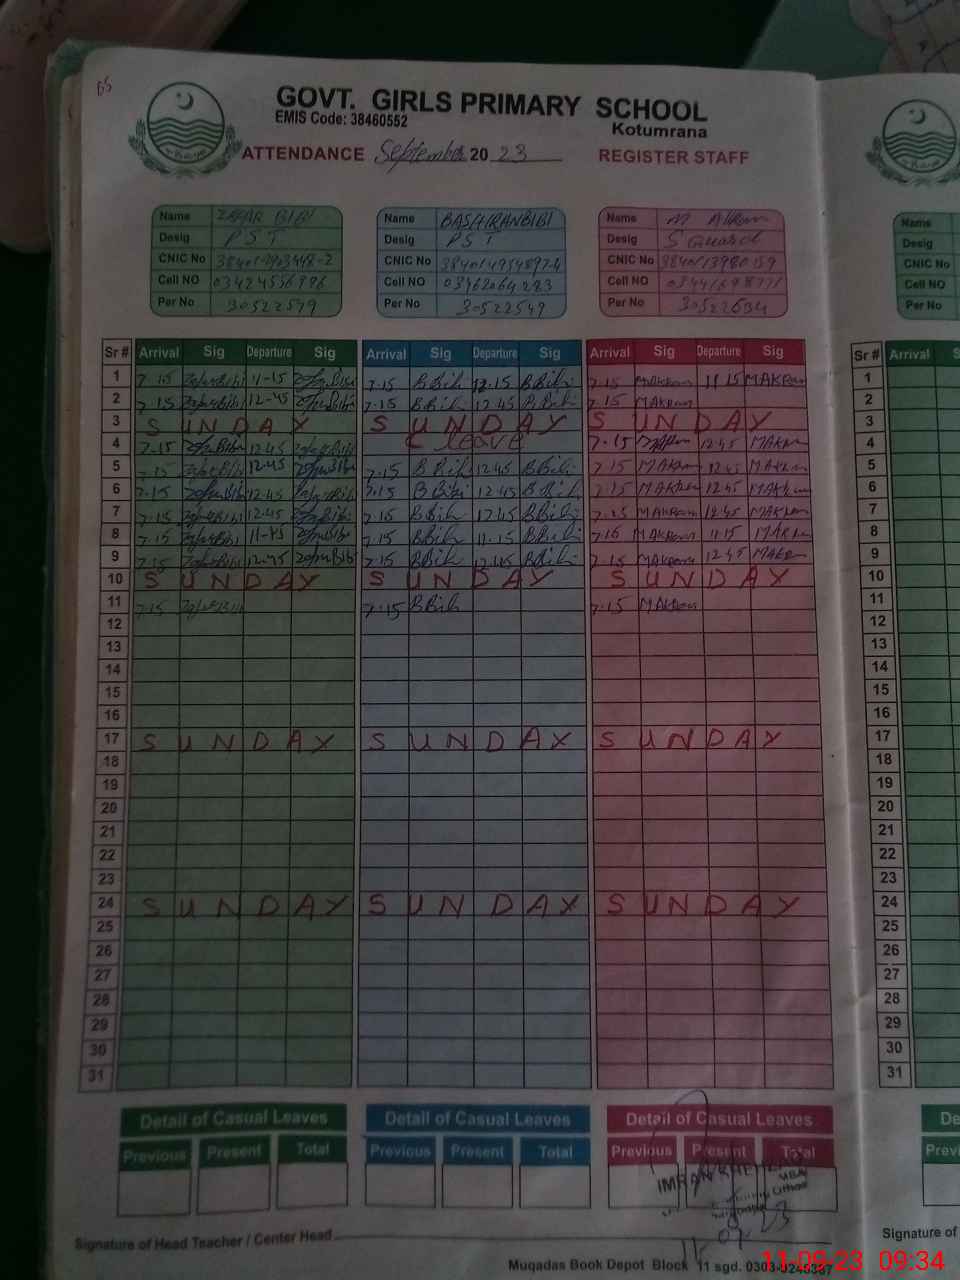 GOVT. GIRLS PRIMARY SCHOOL
EMIS Code: 38460552
Kotumrana
ATTENDANCE September 20 23 REGISTER STAFF
Name ZAFAR BIBI Name BASHIRANBIBI Name M AKRam Name
Desig PST Desig PST Desig S Guard Desig
CNIC No CNIC No CNIC No CNIC No
Cell NO Cell NO Cell NO Cell NO
Per No 30522579 Per No 30522549 Per No 30522634 Per No
Sr # Arrival Sig Departure Sig Arrival Sig Departure Sig Arrival Sig Departure Sig Sr # Arrival
1 7-15 ZafarBibi 11-15 ZafarBibi 7.15 B Bibi 11.15 B Bibi 7-15 MAKRam 11 15 MAKRam 1
2 7-15 ZafarBibi 12-45 ZafarBibi 7.15 B Bibi 12 45 B Bibi 7-15 MAKRam 2
3 SUNDAY SUNDAY SUNDAY 3
4 7-15 ZafarBibi 12.45 ZafarBibi C leave 7-15 12.45 MAKRam 4
5 7.15 ZafarBibi 12-45 ZafarBibi 7.15 B Bibi 12 45 B Bibi 7 15 MAKRam 12 45 MAKRam 5
6 7-15 ZafarBibi 12.45 ZafarBibi 7.15 B Bibi 12 45 B Bibi 7-15 MAKRam 12 45 MAKRam 6
7 7-15 ZafarBibi 12-45 ZafarBibi 7.15 B Bibi 12.45 B Bibi MAKRam 12 45 MAKRam 7
8 7-15 ZafarBibi 11-45 ZafarBibi 7.15 B Bibi 11.15 B Bibi MAKRam 11 15 MAKRam 8
9 7-15 ZafarBibi 12-45 ZafarBibi 7-15 B Bibi 12.45 B Bibi 7.15 MAKRam 12 45 MAKRam 9
10 SUNDAY SUNDAY SUNDAY 10
11 7-15 ZafarBibi 7.15 B Bibi 7-15 MAKRam 11
12 12
13 13
14 14
15 15
16 16
17 SUNDAY SUNDAY SUNDAY 17
18 18
19 19
20 20
21 21
22 22
23 23
24 SUNDAY SUNDAY SUNDAY 24
25 25
26 26
27 27
28 28
29 29
30 30
31 31
Detail of Casual Leaves Detail of Casual Leaves Detail of Casual Leaves
Previous Present Total Previous Present Total Previous Present Total
IMRAN
11 09 23
Signature of Head Teacher / Center Head Signature of
Muqadas Book Depot Block 11 sgd.
11-09-23 09:34